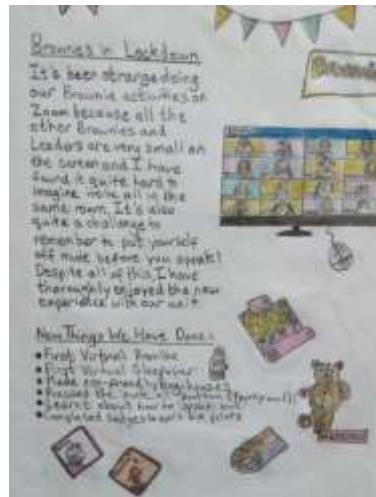 Brownies in Lockdown
It's been strange doing
our Brownie activities on
Zoom because all the
other Brownies and
Leaders are very small on
the screen and I have
found it quite hard to
imagine we're all in the
same room. It's also
quite a challenge to
remember to put yourself
off mute before you speak!
Despite all of this, I have
thoroughly enjoyed the new
experience with our unit.
New Things We Have Done:
First Virtual Promise
First Virtual Sleepover
Made eco-friendly bug houses
Pressed the button
Learnt about how to speak out
Completed badges